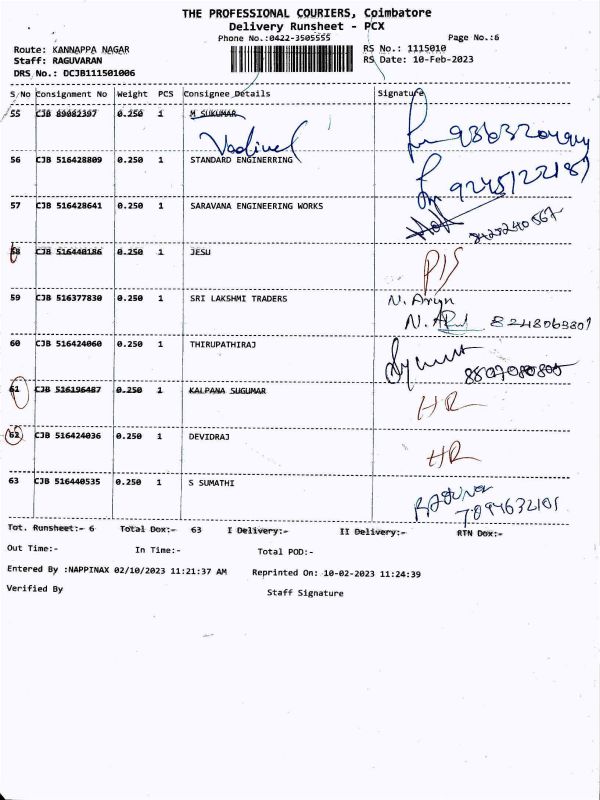 THE PROFESSIONAL COURIERS, Coimbatore
Delivery Runsheet - PCX
Phone No.:0422-3505555 Page No.:6
Route: KANNAPPA NAGAR RS No.: 1115010
Staff: RAGUVARAN RS Date: 10-Feb-2023
DRS No.: DCJB111501006
S/No Consignment No Weight PCS Consignee Details Signature
55 CJB 89082397 0.250 1 M SUKUMAR
Vadivel
56 CJB 516428809 0.250 1 STANDARD ENGINERRING
9245122187
57 CJB 516428641 0.250 1 SARAVANA ENGINEERING WORKS
58 CJB 516440186 0.250 1 JESU
P/S
59 CJB 516377830 0.250 1 SRI LAKSHMI TRADERS N. Arjun
60 CJB 516424060 0.250 1 THIRUPATHIRAJ
61 CJB 516196487 0.250 1 KALPANA SUGUMAR
HR
62 CJB 516424036 0.250 1 DEVIDRAJ
HR
63 CJB 516440535 0.250 1 S SUMATHI
Tot. Runsheet:- 6 Total Dox:- 63 I Delivery:- II Delivery:- RTN Dox:-
Out Time:- In Time:- Total POD:-
Entered By :NAPPINAX 02/10/2023 11:21:37 AM Reprinted On: 10-02-2023 11:24:39
Verified By Staff Signature